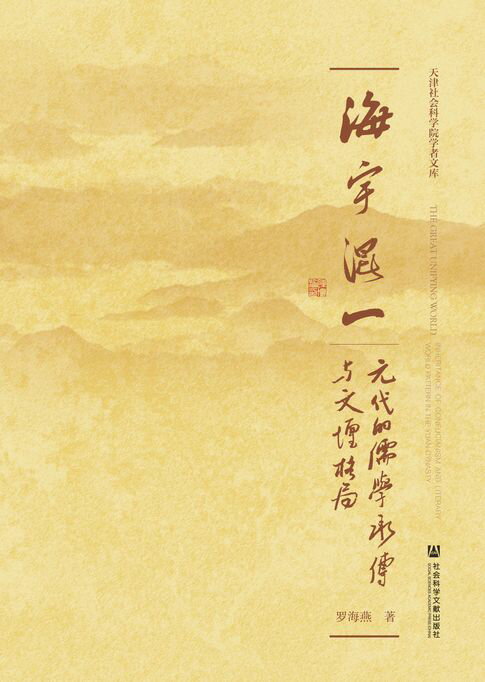 天津社会科学院学者文库
THE GREAT UNIFYING WORLD
INHERITANCE OF CONFUCIANISM AND LITERARY
WORLD PATTERN IN THE YUAN DYNASTY
海宇混一
元代的儒學承傳
与文壇格局
罗海燕 著
社会科学文献出版社
SOCIAL SCIENCES ACADEMIC PRESS (CHINA)